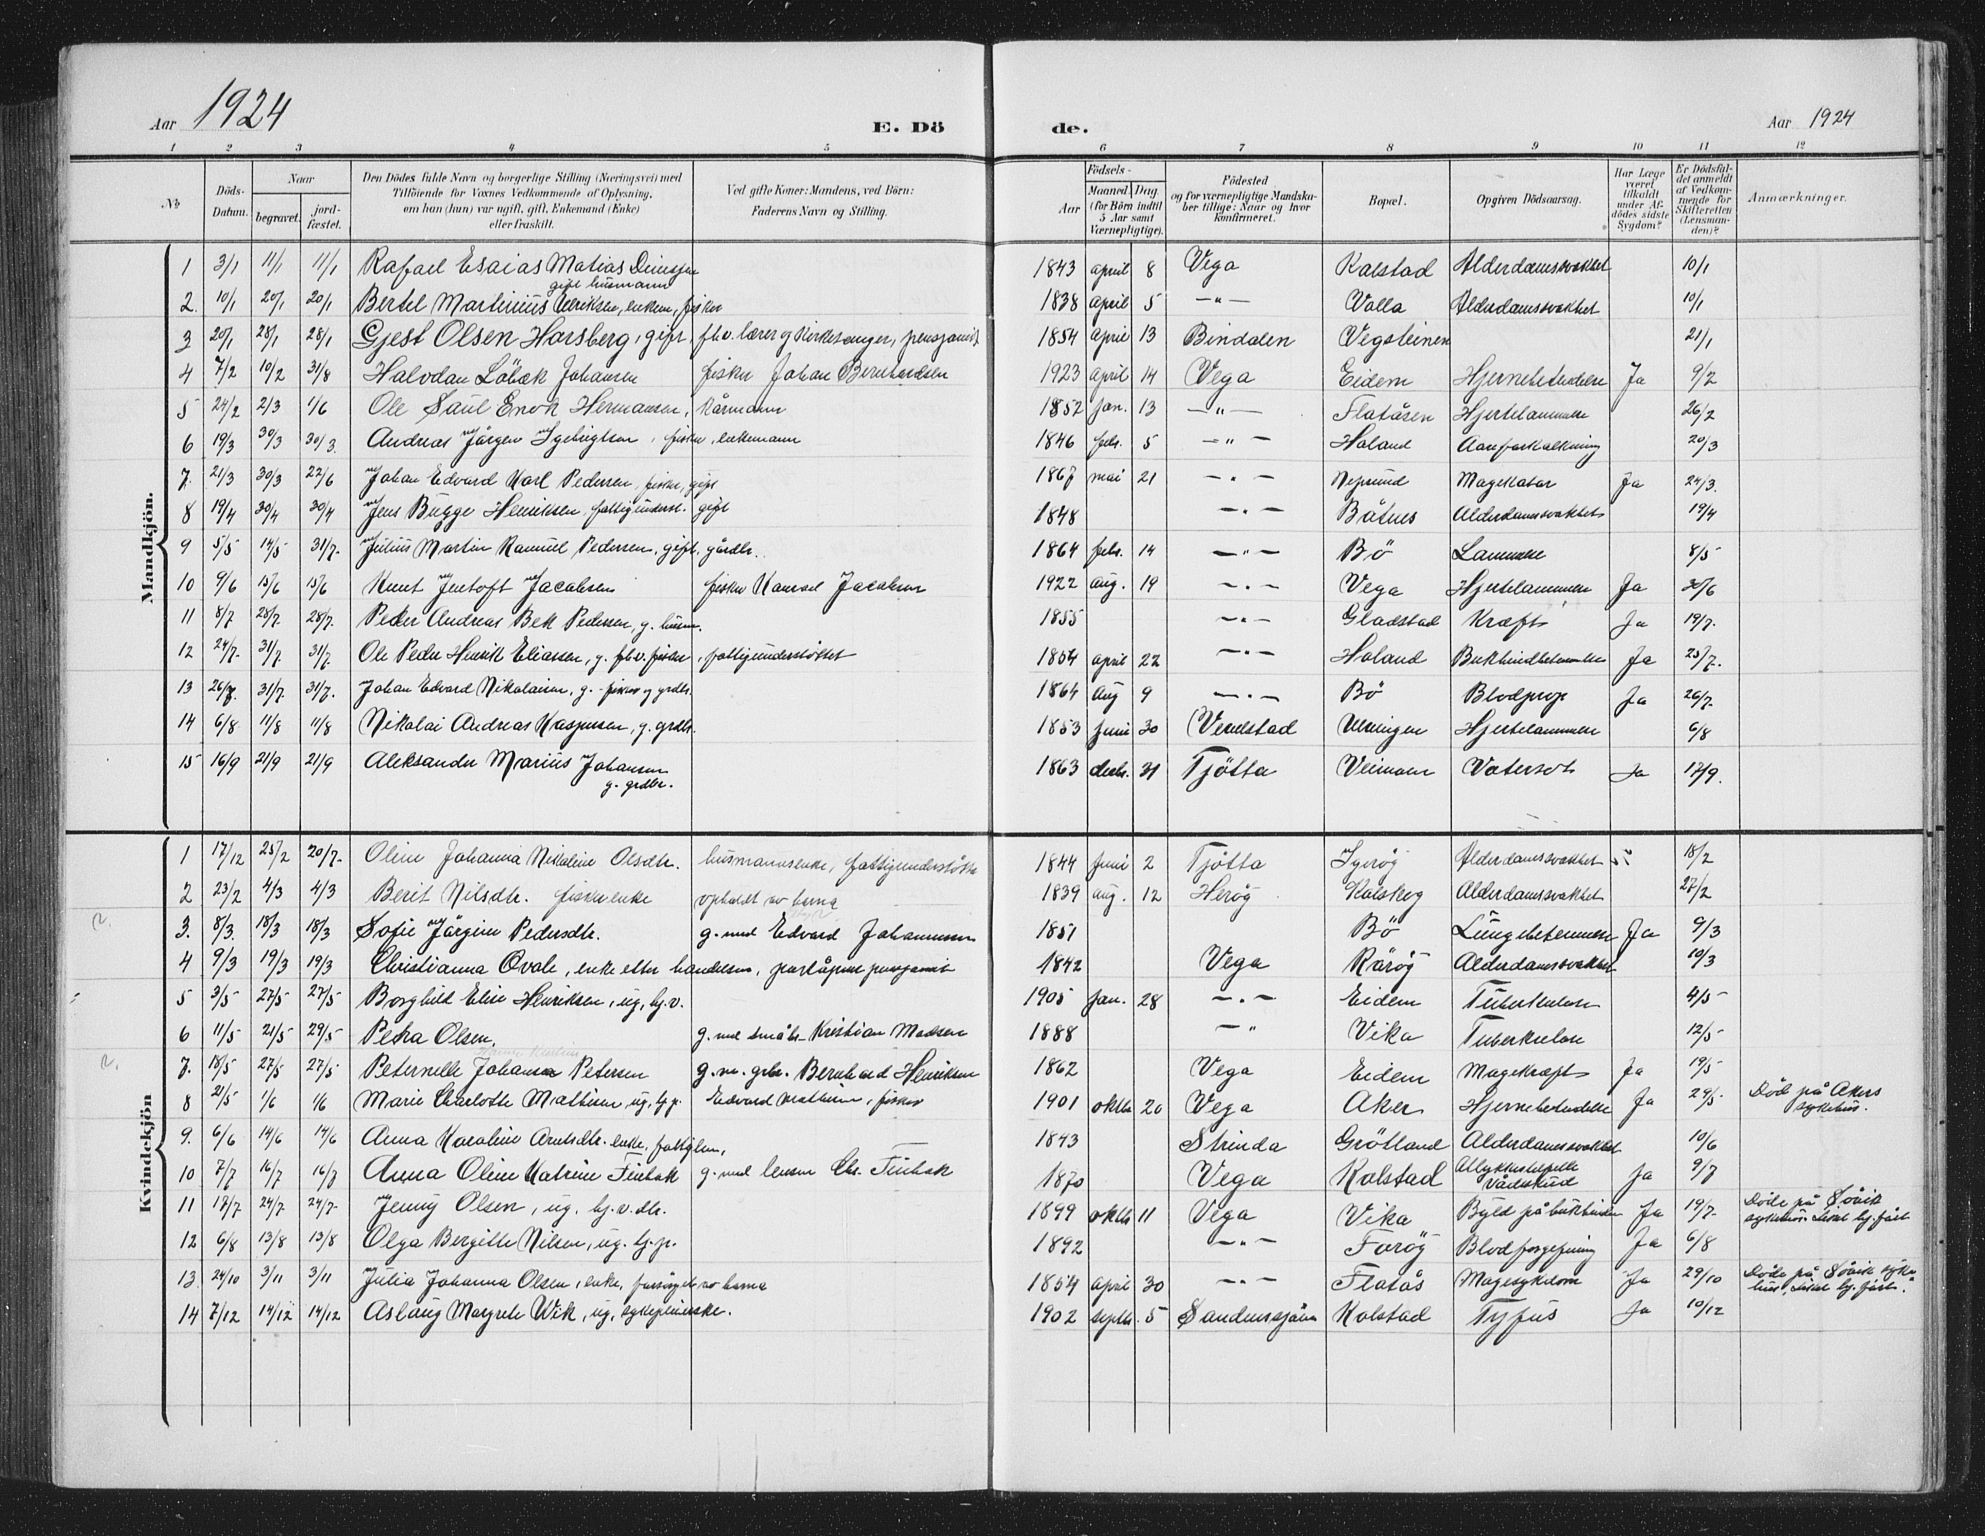 Aar 1924
E. Dö
de.
Aar 1924
1 2 3 4 5 6 7 8 9 10 11 12
№
Döds-Datum.
Naar
begravet.
jord-fæstet.
Den Dödes fulde Navn og borgerlige Stilling (Næringsvei) med
Tilföiende for Voxnes Vedkommende af Oplysning,
om han (hun) var ugift, gift, Enkemand (Enke)
eller fraskilt.
Ved gifte Koner: Mandens, ved Börn:
Faderens Navn og Stilling.
Födsels-
Aar
Maaned. Dag.
(for Börn indtil
5 Aar samt
Værnepligtige).
Födested
og for værnepligtige Mandska-
ber tillige: Naar og hvor
konfirmeret.
Bopæl.
Opgiven Dödsaarsag.
Har Læge
været
tilkaldt
under Af-
dödes sidste
Sygdom?
Er Dödsfal-
det anmeldt
af Vedkom-
mende for
Skifteretten
(Lensman-
den)?
Anmærkninger.
Mandkjön.
1 3/1 11/1 11/1 Rafael Esaias Matias 1843 april 8 Vega Kalstad Alderdomssvakhet 10/1
gift husmann
2 10/1 20/1 20/1 Bertel Martinius Ulriksen, enkem, fisker 1838 april 5 —"— Valla Alderdomssvakhet 10/1
3 20/1 28/1 28/1 Gjest Olsen Horsberg, gift, fhv. lærer og kirkesanger, pensjonist 1854 april 13 Bindalen Vegsteinen 21/1
4 7/2 10/2 31/8 Halvdan Löbak Johansen fisker Johan Bernhardsen 1923 april 14 Vega Eidem Hjernebetendelse Ja 9/2
5 24/2 2/3 1/6 Ole Saul Enok Hermansen, kårmann 1852 jan. 13 —"— Flatåsen Hjertelammelse 26/2
6 19/3 30/3 30/3 Andreas Jörgen Ingebrigtsen, fisker, enkemann 1846 febr. 5 —"— Holand Aareforkalkning 20/3
7. 21/3 30/3 22/6 Johan Edvard Karl Pedersen, fisker, gift 1867 mai 21 —"— Nepsund Magekatar Ja 24/3.
8 19/4 30/4 30/4 Jens Bugge Henriksen, fattigunderst. gift 1848 —"— Båtnes Alderdomssvakhet 19/4
9 5/5 14/5 31/7. Julius Martin Samuel Pedersen, gift, gårdbr. 1864 febr. 14 —"— Bö Lammelse 8/5
10 9/6 15/6 15/6 Knut Jentoft Jacobsen fisker Konrad Jacobsen 1922 aug. 19 —"— Vega Hjertelammelse Ja 30/6
11 8/7 28/7 28/7. Peder Andreas Bek Pedersen, g. husm. 1855 —"— Gladstad Kræft Ja 19/7.
12 24/7. 31/7 31/7. Ole Peder Henrik Eliassen, g. fhv. fisker, fattigunderstöttet 1854 april 22 —"— Holand Bukhindebetennelse Ja 25/7.
13 26/7. 31/7. 31/7. Johan Edvard Nikolaisen, g. fisker og grdbr. 1864 aug 9 —"— Bö Blodprop Ja 26/7.
14 6/8 11/8 11/8 Nikolai Andreas Kaspersen, g. grdbr. 1853 juni 30 Vevelstad Ulvingen Hjertelammelse 6/8
15 16/9 21/9 21/9 Aleksander Marius Johansen 1863 decbr. 31 Tjötta Vatersot Ja 17/9.
g. grdbr.
Kvindekjön
1 17/12 25/2 20/7. Oline Johanna Nikoline Olsdtr. husmannsenke, fattigunderstöttet 1844 juni 2 Tjötta Igeröy Alderdomssvakhet 18/2
2 23/2 4/3 4/3 Berit Nilsdtr. fiskerenke opholdt av barna 1839 aug. 12 Heröy Kalskog Alderdomssvakhet 27/2
2. 3. 8/3. 18/3 18/3 Sofie Jörgine Pedersdtr. g. med Edvard Johannessen 1851 Bö Lungebetennelse Ja 9/3
4 9/3 19/3 19/3 Christianna Qvale, enke efter handelsm, poståpner pensjonist 1842 Vega Råröy Alderdomssvakhet 10/3
5 3/5 27/5 27/5 Borghild Elise Henriksen, ug, hj.v. 1905 jan. 28 —"— Eidem Tuberkulose 4/5
6 11/5 21/5 29/5 Petra Olsen, g. med småbr. Kristian Madsen 1888 —" Vika Tuberkulose 12/5
2. 7. 18/5 27/5 27/5 Peternelle Johansen Petersen g. m. grbr. Bernhard Henriksen 1862 Vega Eidem Magekræft Ja 19/5
8 21/5 1/6 1/6 Marie Charlotte Mathisen ug. hj.p. Edvard Mathisen, fisker 1901 oktbr 20 Vega Aker Hjernebetendelse Ja 24/5 Död på Akers
sykehus.
9. 6/6 14/6 14/6 Anna Karoline Arntsdtr. enke, fattiglem, 1843 Strinda Grötland Alderdomssvakhet 10/6
10 7/7 16/7 16/7 Anna Oline Katrine Finbak g. med lensm Chr. Finbak 1870 Vega Kalstad Ulykkestilfelle Ja 9/7
Vådeskud
11 17/7 24/7 24/7. Jenny Olsen, ug. hj.v.dtr. 1899 oktbr 11 Vega Vika Byld på bukhinden Ja 19/7. Döde på Sövik
sykehus.
12 6/8 13/8 13/8 Olga Bergitte Nilsen, ug. hj.p. 1892 —"— Foröy Blodforgiftning Ja 6/8
13. 24/10 3/11 3/11 Julia Johanna Olsen, enke, forsörget av barna 1854 april 30 —"— Flatås Magesykdom Ja 29/10 Döde på Sövik syke
hus,
14 7/12 14/12 14/12 Aslaug Margrete Wik, ug, sykepleierske. 1902 septbr. 5 Sandnessjöen Kalstad Tyfus Ja 10/12